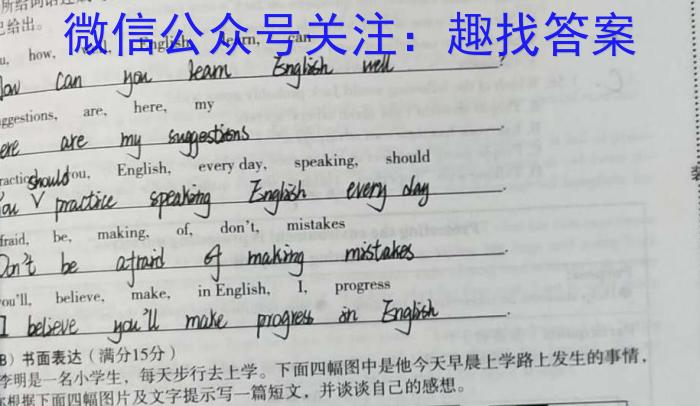 所给词语连成
已给出。
微信公众号关注：趣找答案
u, how, English, learn, can
How can you learn English well ?
uggestions, are, here, my
ere are my suggestions .
practice, you, English, every day, speaking, should
You should practice speaking English every day .
fraid, be, making, of, don't, mistakes
Don't be afraid of making mistakes .
you'll, believe, make, in English, I, progress
I believe you'll make progress in English .
B) 书面表达（满分15分）
李明是一名小学生，每天步行去上学。下面四幅图中是他今天早晨上学路上发生的事情，
你根据下面四幅图片及文字提示写一篇短文，并谈谈自己的感想。